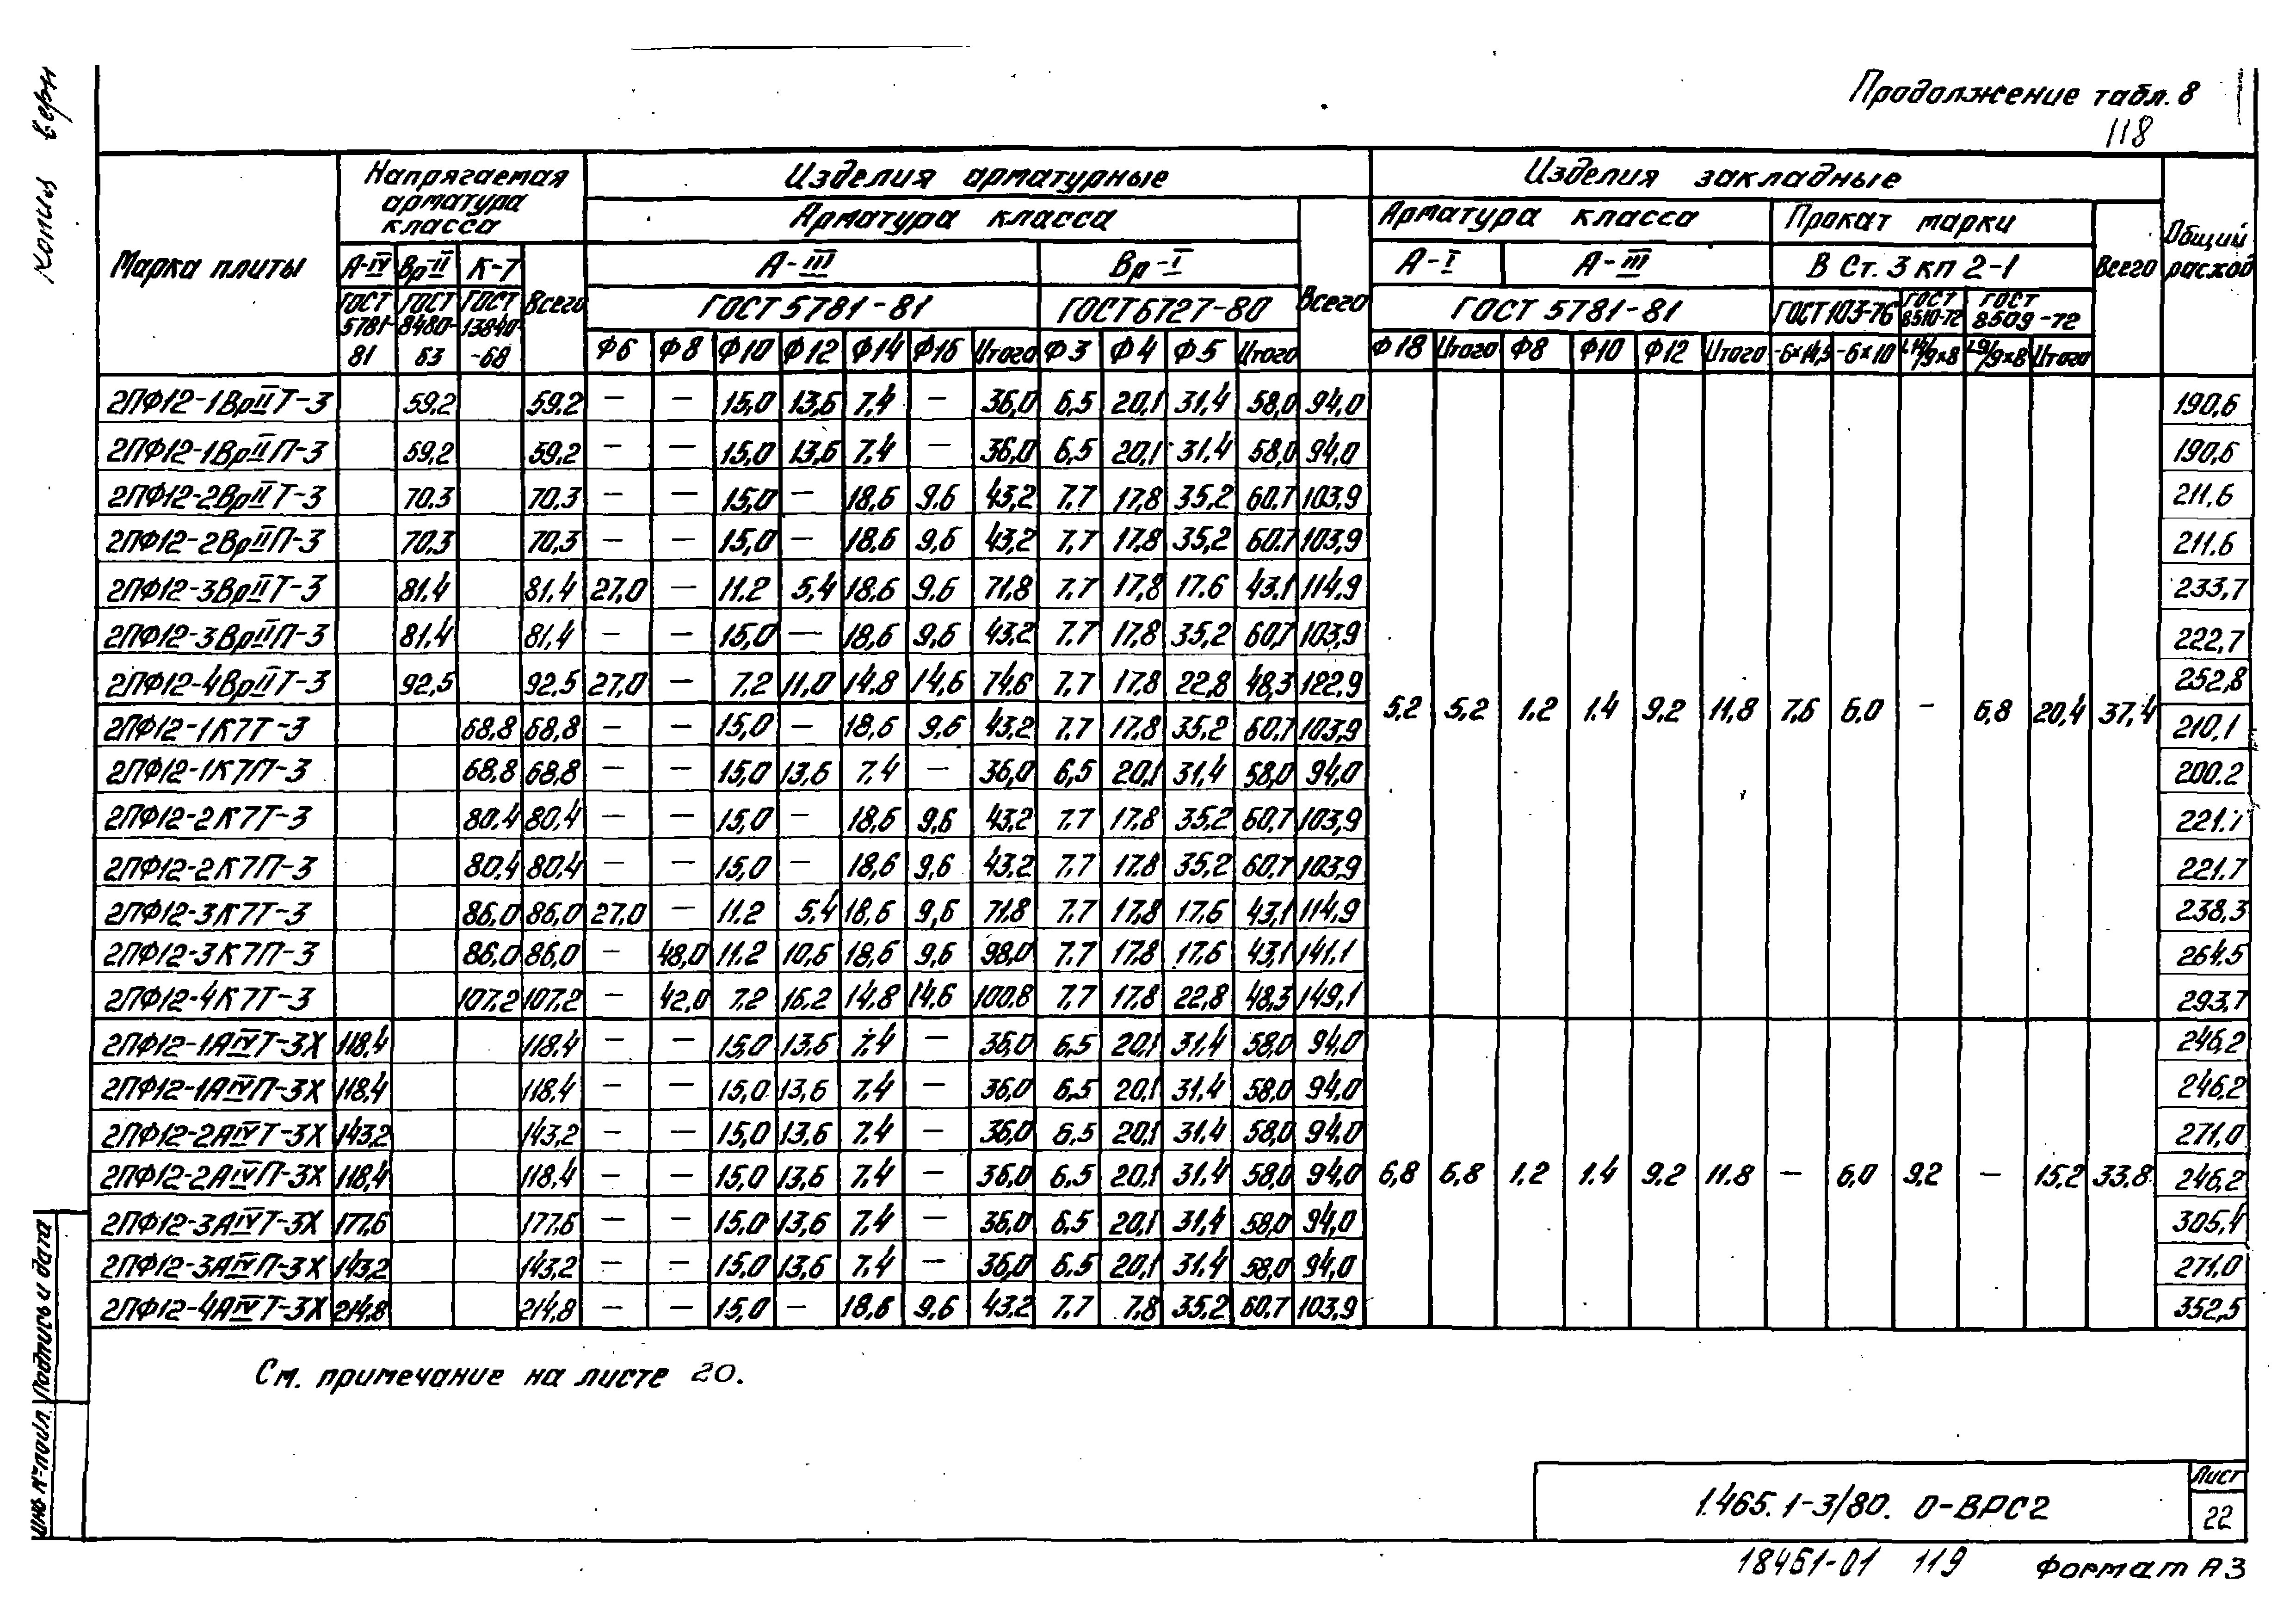 Копия верн
Продолжение табл. 8
118
Марка плиты | Напрягаемая арматура класса | Изделия арматурные | Изделия закладные | Общий расход
Арматура класса | Всего | Арматура класса | Прокат марки | Всего
А-IV | Вр-II | К-7 | Всего | А-III | Вр-I | А-I | А-III | В Ст. 3 кп 2-1
ГОСТ 5781-81 | ГОСТ 8480-63 | ГОСТ 13840-68 | ГОСТ 5781-81 | ГОСТ 6727-80 | ГОСТ 5781-81 | ГОСТ 103-76 | ГОСТ 8510-72 | ГОСТ 8509-72
Ф6 | Ф8 | Ф10 | Ф12 | Ф14 | Ф16 | Итого | Ф3 | Ф4 | Ф5 | Итого | Ф18 | Итого | Ф8 | Ф10 | Ф12 | Итого | -6×14,5 | -6×10 | L14/9×8 | L9/9×8 | Итого
2ПФ12-1ВрIIТ-3 59,2 59,2 — — 15,0 13,6 7,4 — 36,0 6,5 20,1 31,4 58,0 94,0 190,6
2ПФ12-1ВрIIП-3 59,2 59,2 — — 15,0 13,6 7,4 — 36,0 6,5 20,1 31,4 58,0 94,0 190,6
2ПФ12-2ВрIIТ-3 70.3 70.3 — — 15,0 — 18,6 9,6 43,2 7,7 17,8 35,2 60,7 103,9 211,6
2ПФ12-2ВрIIП-3 70,3 70,3 — — 15,0 — 18,6 9,6 43,2 7,7 17,8 35,2 60,7 103,9 211.6
2ПФ12-3ВрIIТ-3 81.4 81.4 27,0 — 11.2 5,4 18,6 9,6 71,8 7,7 17,8 17.6 43,1 114,9 233,7
2ПФ12-3ВрIIП-3 81,4 81,4 — — 15,0 — 18,6 9,6 43,2 7,7 17,8 35,2 60,7 103,9 222,7
2ПФ12-4ВрIIТ-3 92,5 92,5 27,0 — 7.2 11,0 14,8 14,6 74,6 7,7 17,8 22,8 48,3 122,9 252,8
5,2 5,2 1.2 1.4 9,2 11,8 7,6 6,0 — 6,8 20,4 37,4
2ПФ12-1К7Т-3 68,8 68,8 — — 15,0 — 18,6 9,6 43,2 7,7 17,8 35,2 60,7 103,9 210,1
2ПФ12-1К7П-3 68,8 68,8 — — 15,0 13,6 7,4 — 36,0 6,5 20,1 31,4 58,0 94,0 200.2
2ПФ12-2К7Т-3 80,4 80,4 — — 15,0 — 18,6 9,6 43,2 7,7 17,8 35,2 60,7 103,9 221.7
2ПФ12-2К7П-3 80,4 80,4 — — 15,0 — 18,6 9,6 43,2 7,7 17.8 35,2 60,7 103,9 221.7
2ПФ12-3К7Т-3 86,0 86,0 27,0 — 11.2 5,4 18,6 9,6 71,8 7,7 17,8 17,6 43,1 114,9 238,3
2ПФ12-3К7П-3 86,0 86,0 — 48,0 11.2 10,6 18,6 9,6 98,0 7,7 17,8 17,6 43,1 141,1 264,5
2ПФ12-4К7Т-3 107,2 107,2 — 42,0 7,2 16.2 14,8 14,6 100,8 7,7 17,8 22,8 48,3 149,1 293,7
2ПФ12-1АIVТ-3Х 118,4 118,4 — — 15,0 13,6 7,4 — 36,0 6,5 20,1 31,4 58,0 94,0 246,2
2ПФ12-1АIVП-3Х 118,4 118,4 — — 15,0 13,6 7,4 — 36,0 6,5 20,1 31,4 58,0 94,0 246,2
2ПФ12-2АIVТ-3Х 143,2 143,2 — — 15,0 13,6 7,4 — 36,0 6,5 20,1 31,4 58,0 94,0 271,0
2ПФ12-2АIVП-3Х 118,4 118,4 — — 15,0 13,6 7,4 — 36,0 6,5 20,1 31,4 58,0 94,0 6,8 6,8 1.2 1.4 9.2 11.8 — 6,0 9,2 — 15,2 33,8 246,2
2ПФ12-3АIVТ-3Х 177,6 177,6 — — 15,0 13,6 7,4 — 36,0 6,5 20,1 31,4 58,0 94,0 305,4
2ПФ12-3АIVП-3Х 143,2 143,2 — — 15,0 13,6 7,4 — 36,0 6,5 20,1 31,4 58,0 94,0 271,0
2ПФ12-4АIVТ-3Х 214,8 214,8 — — 15,0 — 18,6 9,6 43,2 7,7 7,8 35,2 60,7 103,9 352,5
См. примечание на листе 20.
Инв. №подл. Подпись и дата
1.465.1-3/80. 0-ВРС2
Лист
22
18451-01 119 Формат А3